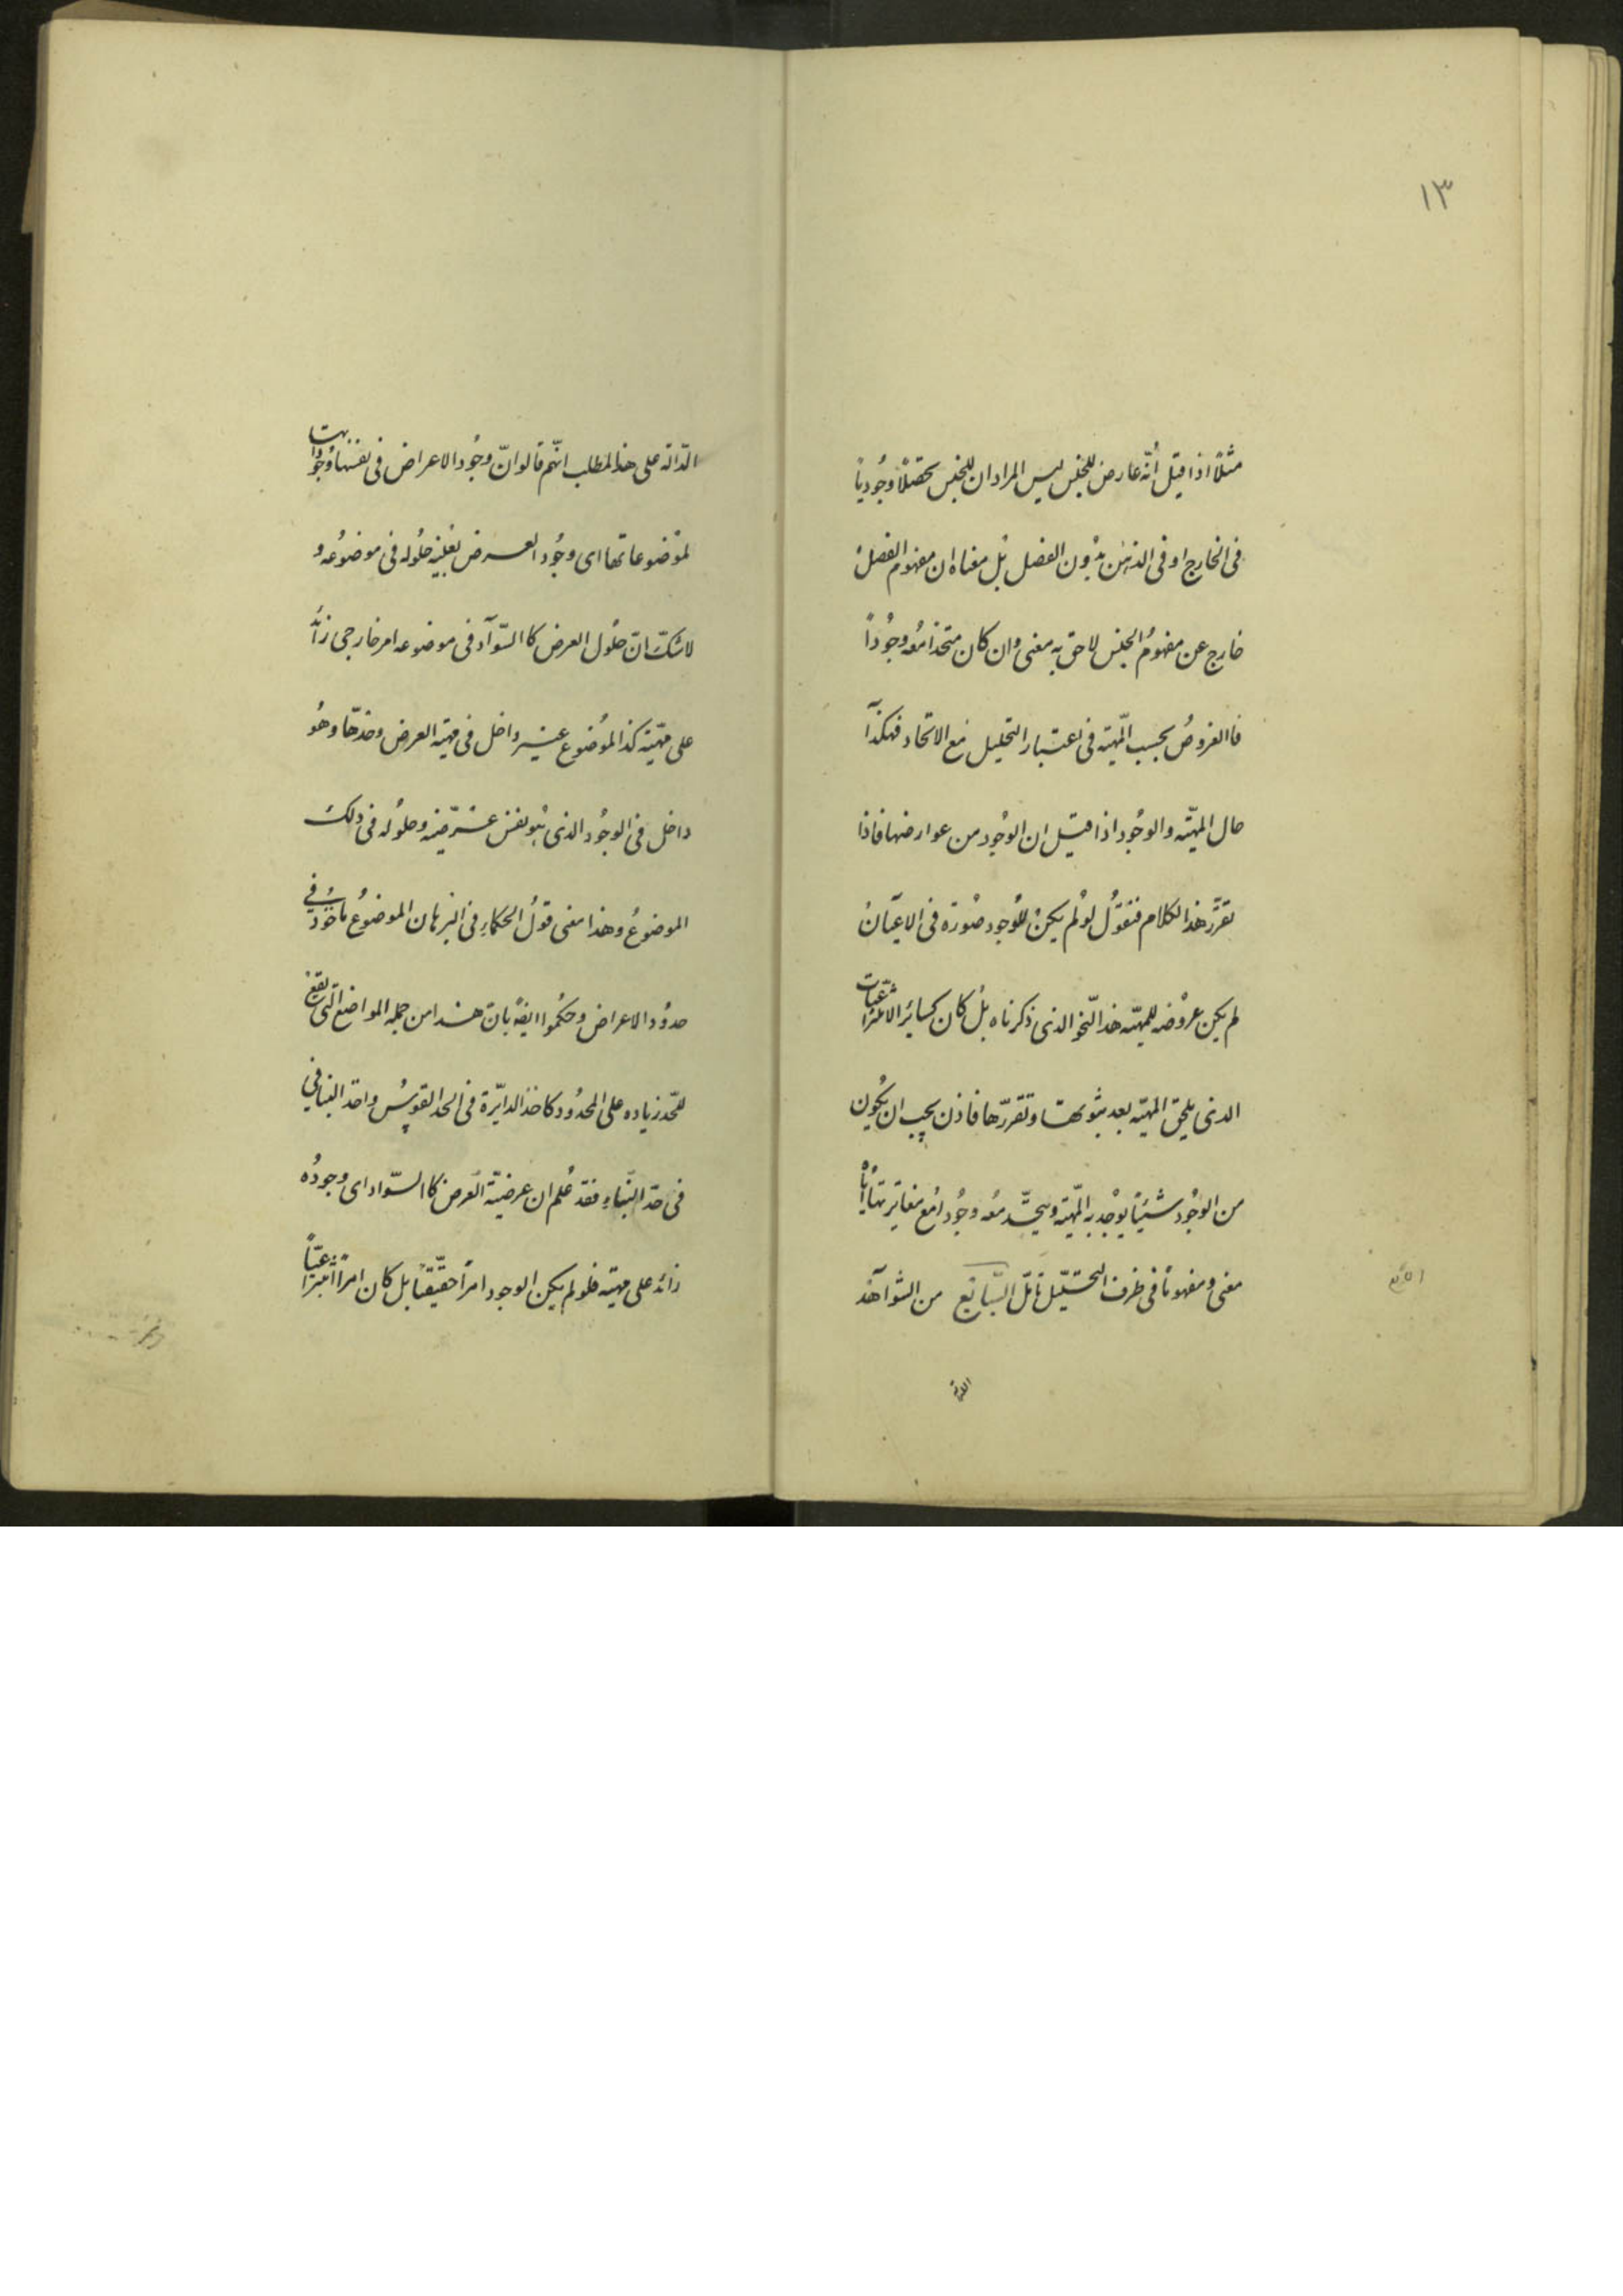 ١٣
مثلًا اذا قيل أنّه عارض للجنس ليس المراد ان للجنس تحصّلًا وجُودياً
فى الخارج او فى الذهن بدُون الفصل بل معناه ان مفهوم الفصل
خارج عن مفهومُ الجنس لاحق به معنى وان كان متحداً معُه وجُوداً
فالعروضُ بحسب المهيّة فى اعتبار التحليل مع الاتحاد فهكذا
حال المهيّة والوجُود اذا قيل ان الوجُود من عوارضها فاذا
تقرّر هذا الكلام فنقوُل لو لم يكن للوُجود صُورة فى الاعيان
لم يكن عروُضه للمهيّة هذا النّحو الذى ذكرناه بل كان كسائر الانتزاعيّات
الذى يلحق المهيّة بعد ثبوتها وتقرّرها فاذن يجب ان يكُون
من الوجُود شيئًا يوُجد به المهيّة ويتّحد معُه وجُودا مع مغايرتها ايّاه
معنى ومفهوماً فى ظرف التحليل تامّل السّابع من الشواهد
الدّالة
الدّالة على هذا المطلب انّهم قالوا انّ وجُود الاعراض فى نفسها وجُوداتها
لموُضوعاتها اى وجُود العرض بعينه حلُوله فى موضوُعه و
لا شكّ انّ حلُول العرض كالسّواد فى موضوعه امر خارجى زائد
على مهيّته كذا الموُضوع غير داخل فى مهيّة العرض وحدّها وهُو
داخل فى الوجُود الذى هو نفس عرضيّته وحلوُله فى ذلك
الموضوعُ وهذا معنى قول الحكماءِ فى البرهان الموضوُع ماخُوذ فى
حدوُد الاعراض وحكمُوا ايضاً بان هذا من جمله المواضع التى تقع
للحّد زياده على المحدُود كاخذ الدايرة فى الحد القوس واخذ البناء فى
فى حدّ البنّاءِ فقد عُلم ان عرضيّة العرض كالسّواد اى وجودُه
زائد على مهيّته فلو لم يكن الوجود امراً حقيقيّاً بل كان امراً انتزاعيّاً